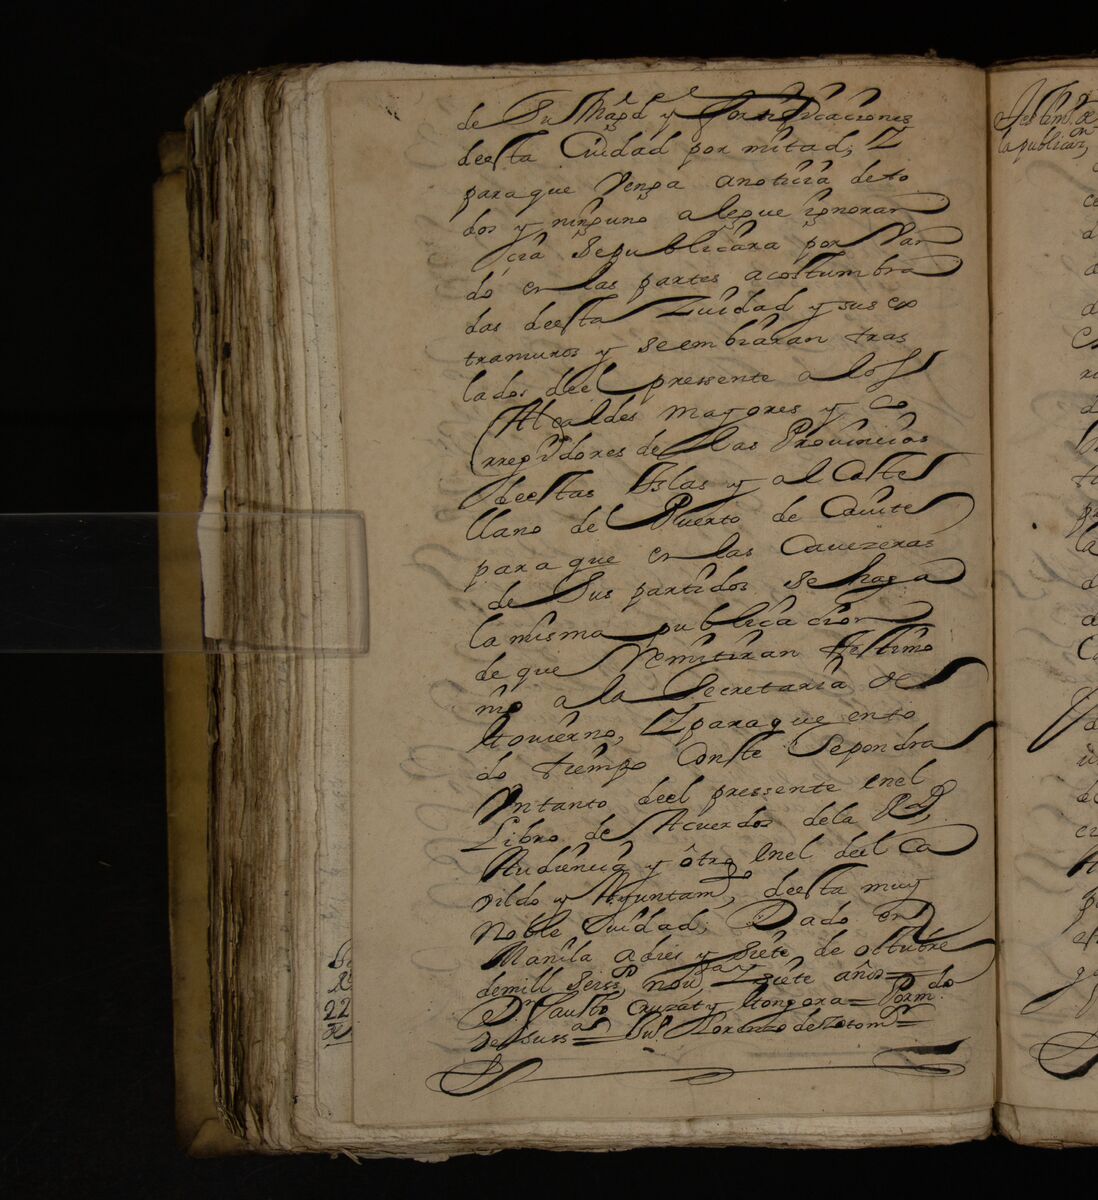 de Su Magd y fortificaciones
deesta Ciudad por mitad; Z
para que Venga anoticia deto
dos y ninguno alegue ignoran
cia Sepublicara por Van
do en las partes acostumbra
das deesta Zuidad y sus ex
tramuros y seembiaran tras
lados deel pressente alos
Alcaldes mayores y Co
rregidores de las Provincias
deestas Islas y al Caste
llano de Puerto de Cavite
para que en las Cavezeras
de Sus partidos se haga
la misma publicacion
de que Remitiran testimo
nio a la Secretaria de
Govierno, Zpara que ento
do tiempo Conste Sepondra
Vntanto deel pressente enel
Libro de Acuerdos dela Rl
Audiencia y ôtro Enel deel Ca
vildo y Ayuntamto, deesta muy
Noble Ciudad; Dado en
Manila adies y Siete de octubre
demill Seiss nouta Zsiete años =
Dn fausto Cruzat y Gongora = Pormdo
De Su ssa = Dn Lorenzo de
Testimo
la publicn,
22